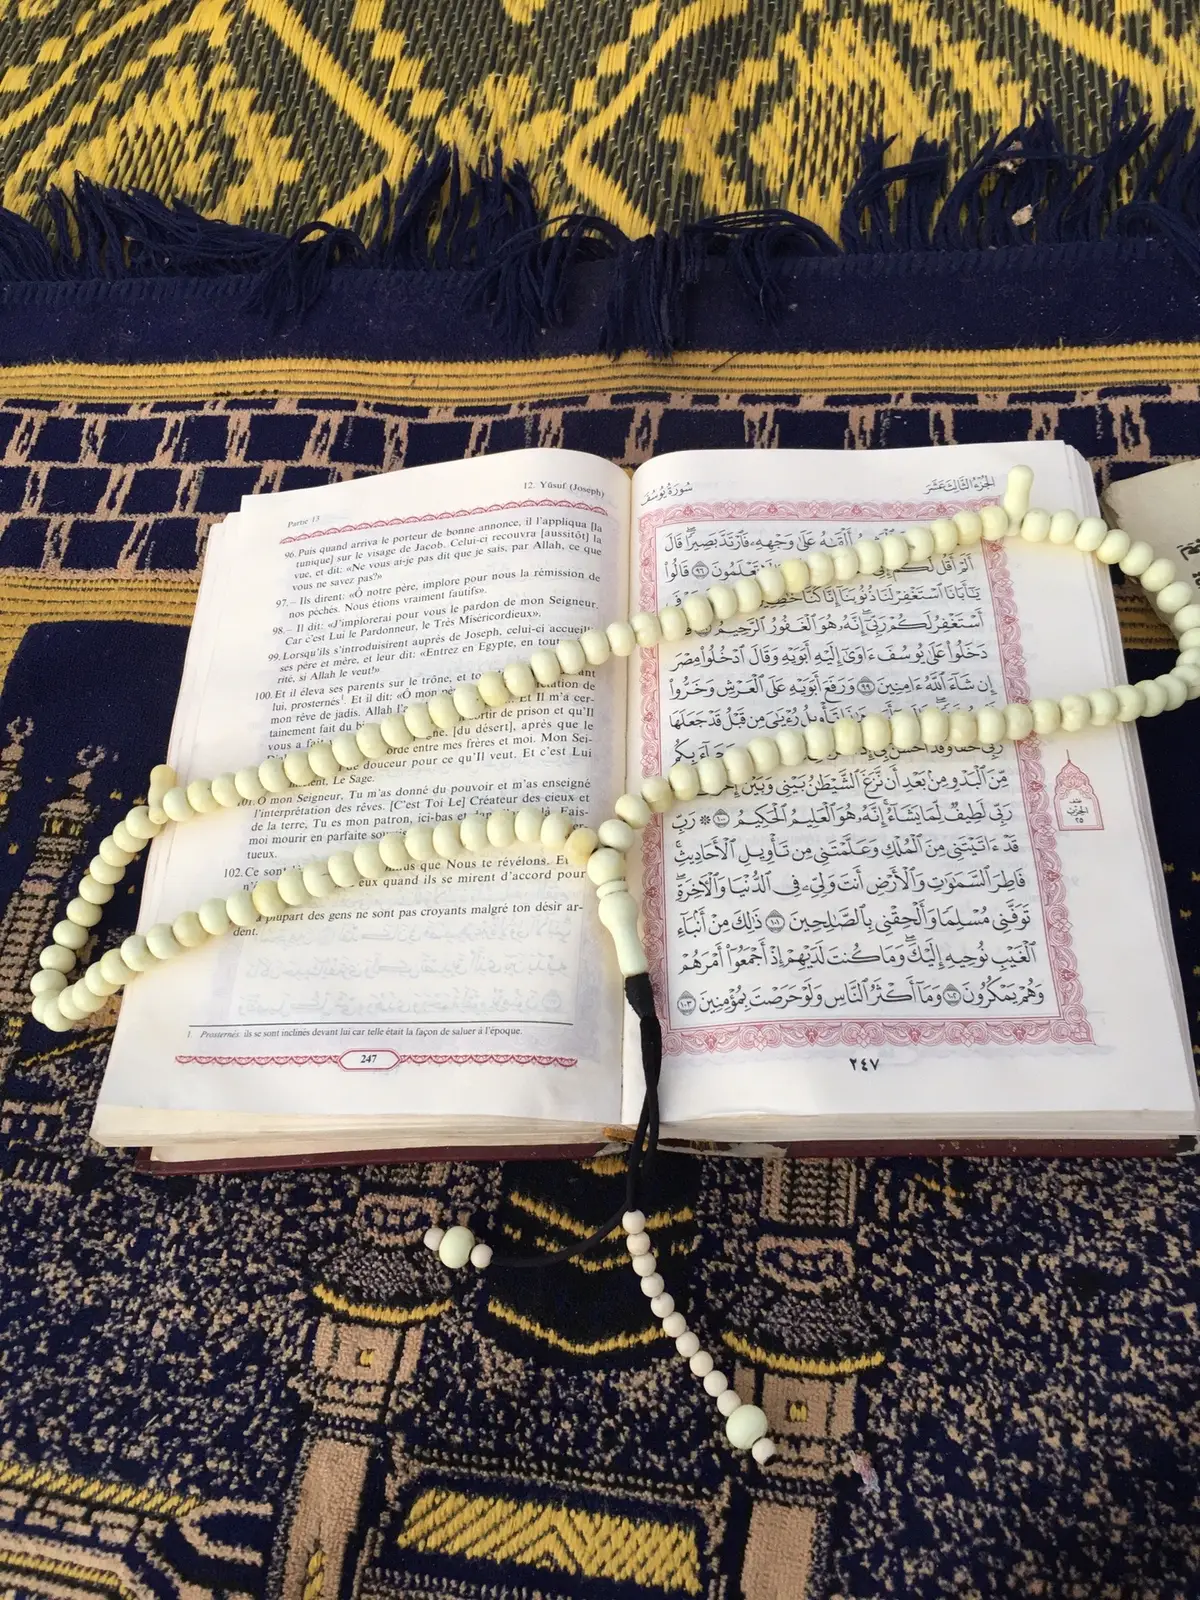 Partie 13
12. Yūsuf (Joseph)
96. Puis quand arriva le porteur de bonne annonce, il l'appliqua [la
tunique] sur le visage de Jacob. Celui-ci recouvra [aussitôt] la
vue, et dit: «Ne vous ai-je pas dit que je sais, par Allah, ce que
vous ne savez pas?»
97. – Ils dirent: «Ô notre père, implore pour nous la rémission de
nos péchés. Nous étions vraiment fautifs».
98. – Il dit: «J'implorerai pour vous le pardon de mon Seigneur.
Car c'est Lui le Pardonneur, le Très Miséricordieux».
99. Lorsqu'ils s'introduisirent auprès de Joseph, celui-ci accueillit
ses père et mère, et leur dit: «Entrez en Egypte, en
rité, si Allah le veut!»
100. Et il éleva ses parents sur le trône, et
lui, prosternés¹. Et il dit: «Ô mon de
mon rêve de jadis. Allah Et Il m'a cer-
tainement fait du sortir de prison et qu'Il
vous a fait [du désert], après que le
entre mes frères et moi. Mon Sei-
douceur pour ce qu'Il veut. Et c'est Lui
Le Sage.
101. Ô mon Seigneur, Tu m'as donné du pouvoir et m'as enseigné
l'interprétation des rêves. [C'est Toi Le] Créateur des cieux et
de la terre, Tu es mon patron, ici-bas et Fais-
moi mourir en parfaite
tueux.
102. Ce que Nous te révélons. Et
eux quand ils se mirent d'accord pour
plupart des gens ne sont pas croyants malgré ton désir ar-
dent.
1. Prosternés: ils se sont inclinés devant lui car telle était la façon de saluer à l'époque.
247
الجزء الثالث عشر
سورة يوسف
أَلْقَىٰهُ عَلَىٰ وَجْهِهِۦ فَٱرْتَدَّ بَصِيرًا ۖ قَالَ
أَلَمْ أَقُل لَّكُمْ إِنِّىٓ لَا تَعْلَمُونَ ٩٦ قَالُوا۟
يَـٰٓأَبَانَا ٱسْتَغْفِرْ لَنَا ذُنُوبَنَآ إِنَّا كُنَّا
أَسْتَغْفِرُ لَكُمْ رَبِّىٓ ۖ إِنَّهُۥ هُوَ ٱلْغَفُورُ ٱلرَّحِيمُ
دَخَلُوا۟ عَلَىٰ يُوسُفَ ءَاوَىٰٓ إِلَيْهِ أَبَوَيْهِ وَقَالَ ٱدْخُلُوا۟ مِصْرَ
إِن شَآءَ ٱللَّهُ ءَامِنِينَ ٩٩ وَرَفَعَ أَبَوَيْهِ عَلَى ٱلْعَرْشِ وَخَرُّوا۟
تَأْوِيلُ رُءْيَـٰىَ مِن قَبْلُ قَدْ جَعَلَهَا
رَبِّى حَقًّا ۖ وَقَدْ أَحْسَنَ بِىٓ وَجَآءَ بِكُم
مِّنَ ٱلْبَدْوِ مِنۢ بَعْدِ أَن نَّزَغَ ٱلشَّيْطَـٰنُ بَيْنِى وَبَيْنَ
رَبِّى لَطِيفٌ لِّمَا يَشَآءُ ۚ إِنَّهُۥ هُوَ ٱلْعَلِيمُ ٱلْحَكِيمُ ١٠٠ ۞ رَبِّ
قَدْ ءَاتَيْتَنِى مِنَ ٱلْمُلْكِ وَعَلَّمْتَنِى مِن تَأْوِيلِ ٱلْأَحَادِيثِ ۚ
فَاطِرَ ٱلسَّمَـٰوَٰتِ وَٱلْأَرْضِ أَنتَ وَلِىِّۦ فِى ٱلدُّنْيَا وَٱلْـَٔاخِرَةِ ۖ
تَوَفَّنِى مُسْلِمًا وَأَلْحِقْنِى بِٱلصَّـٰلِحِينَ ١٠١ ذَٰلِكَ مِنْ أَنۢبَآءِ
ٱلْغَيْبِ نُوحِيهِ إِلَيْكَ ۖ وَمَا كُنتَ لَدَيْهِمْ إِذْ أَجْمَعُوٓا۟ أَمْرَهُمْ
وَهُمْ يَمْكُرُونَ ١٠٢ وَمَآ أَكْثَرُ ٱلنَّاسِ وَلَوْ حَرَصْتَ بِمُؤْمِنِينَ ١٠٣
نصف
الحزب
٢٥
٢٤٧